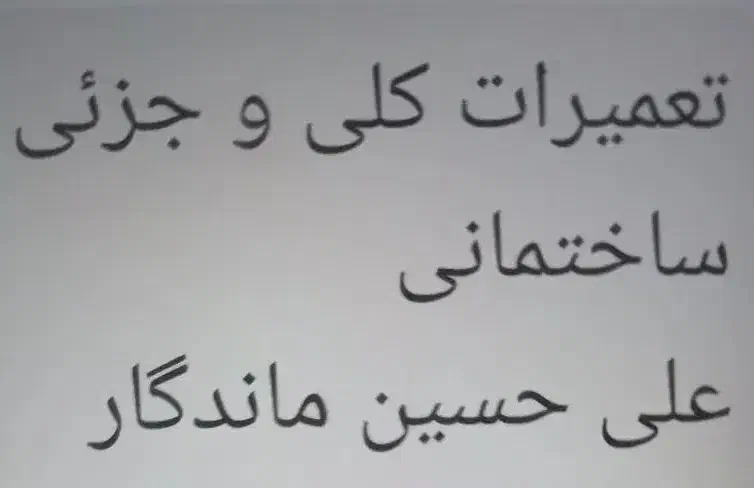 تعمیرات کلی و جزئی
ساختمانی
علی حسین ماندگار